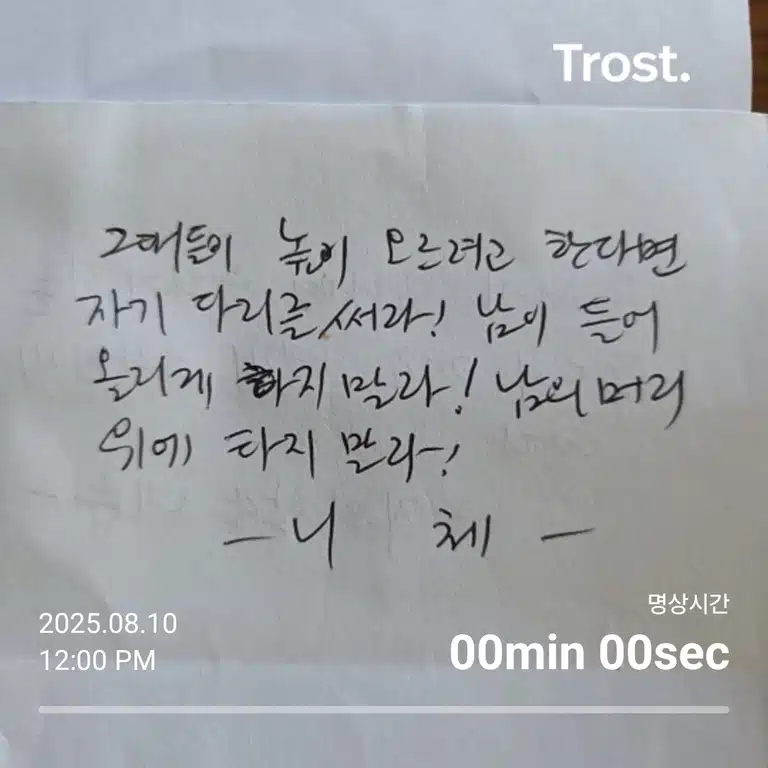 Trost.
그대들이 높이 오르려고 한다면
자기 다리를 써라! 남이 들어
올리게 하지 말라! 남의 머리
위에 타지 말라!
- 니 체 -
명상시간
2025.08.10
12:00 PM
00min 00sec